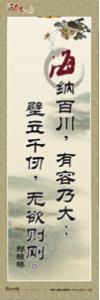 海纳百川，有容乃大；
壁立千仞，无欲则刚。
郑板桥